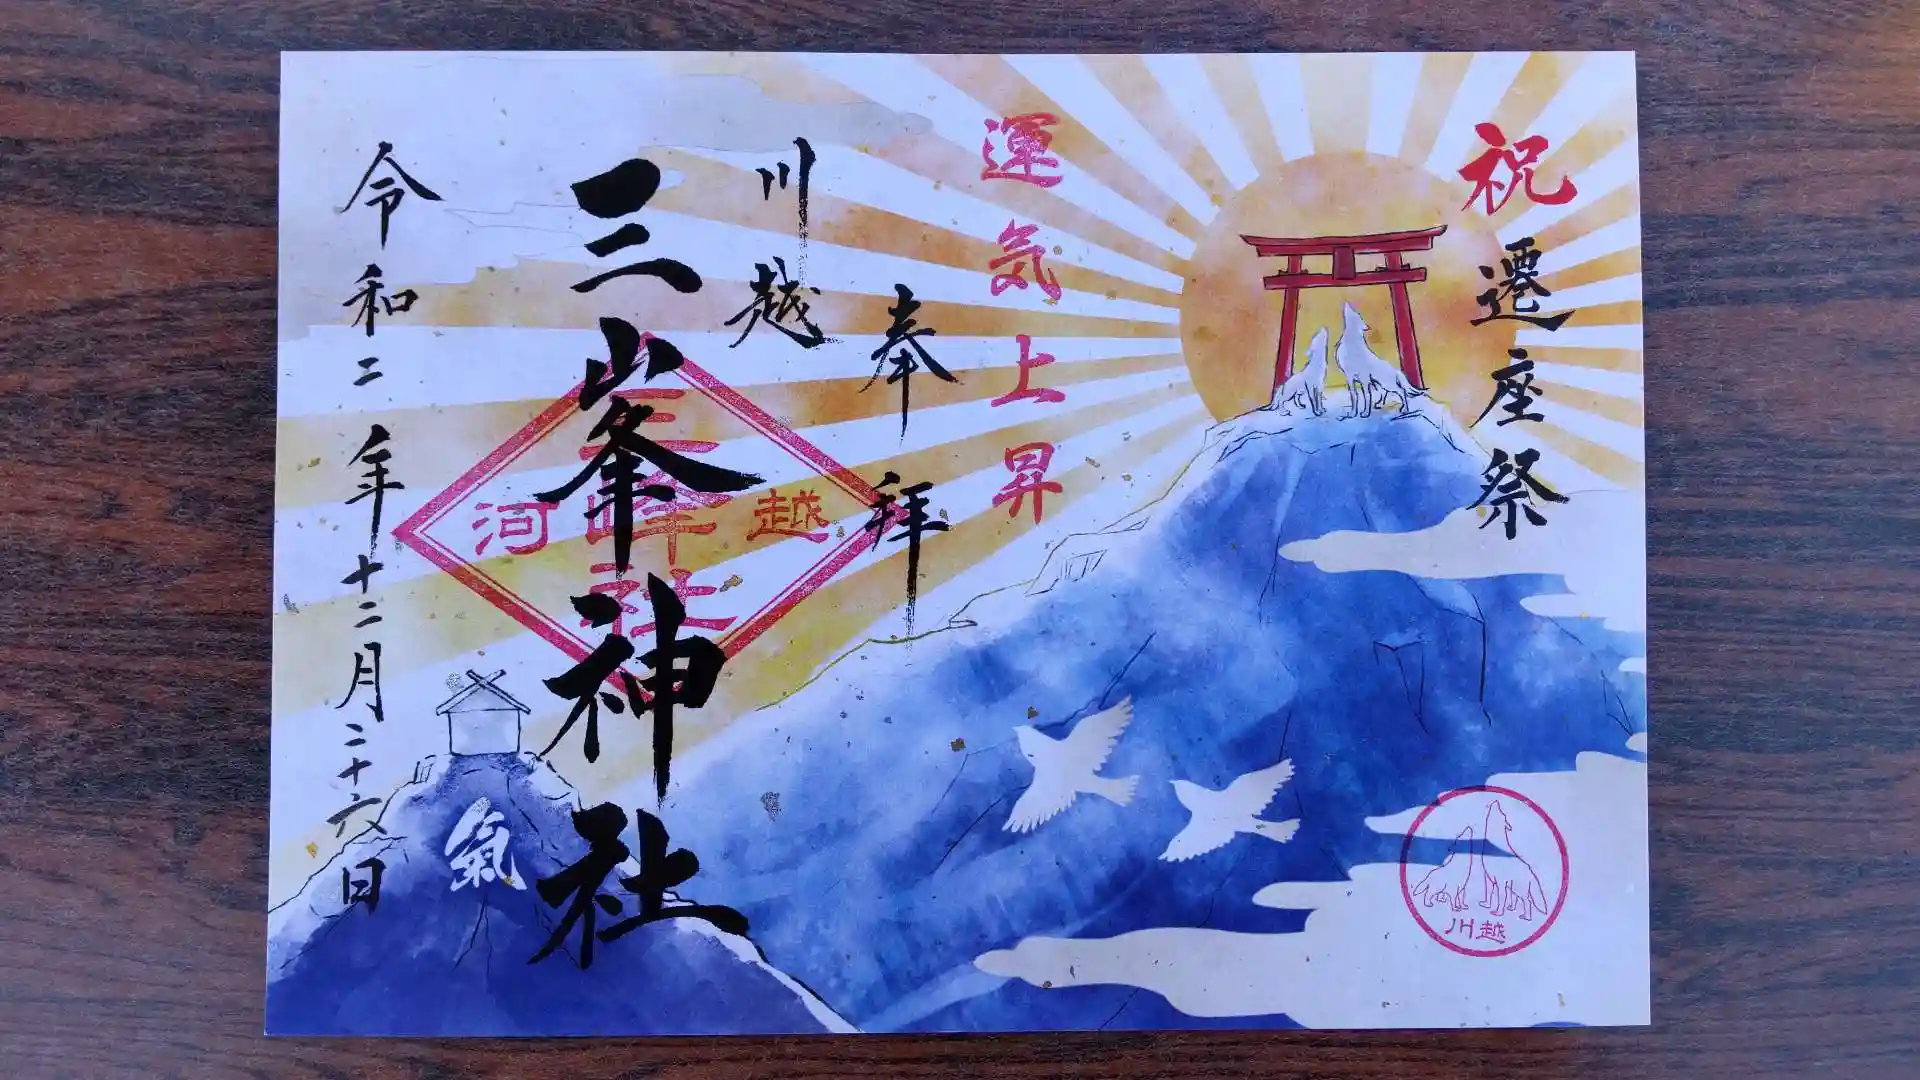 祝
遷座祭
運気上昇
奉拝
川越
三峯神社
三峰社
河越
令和二年十二月二十六日
氣
川越